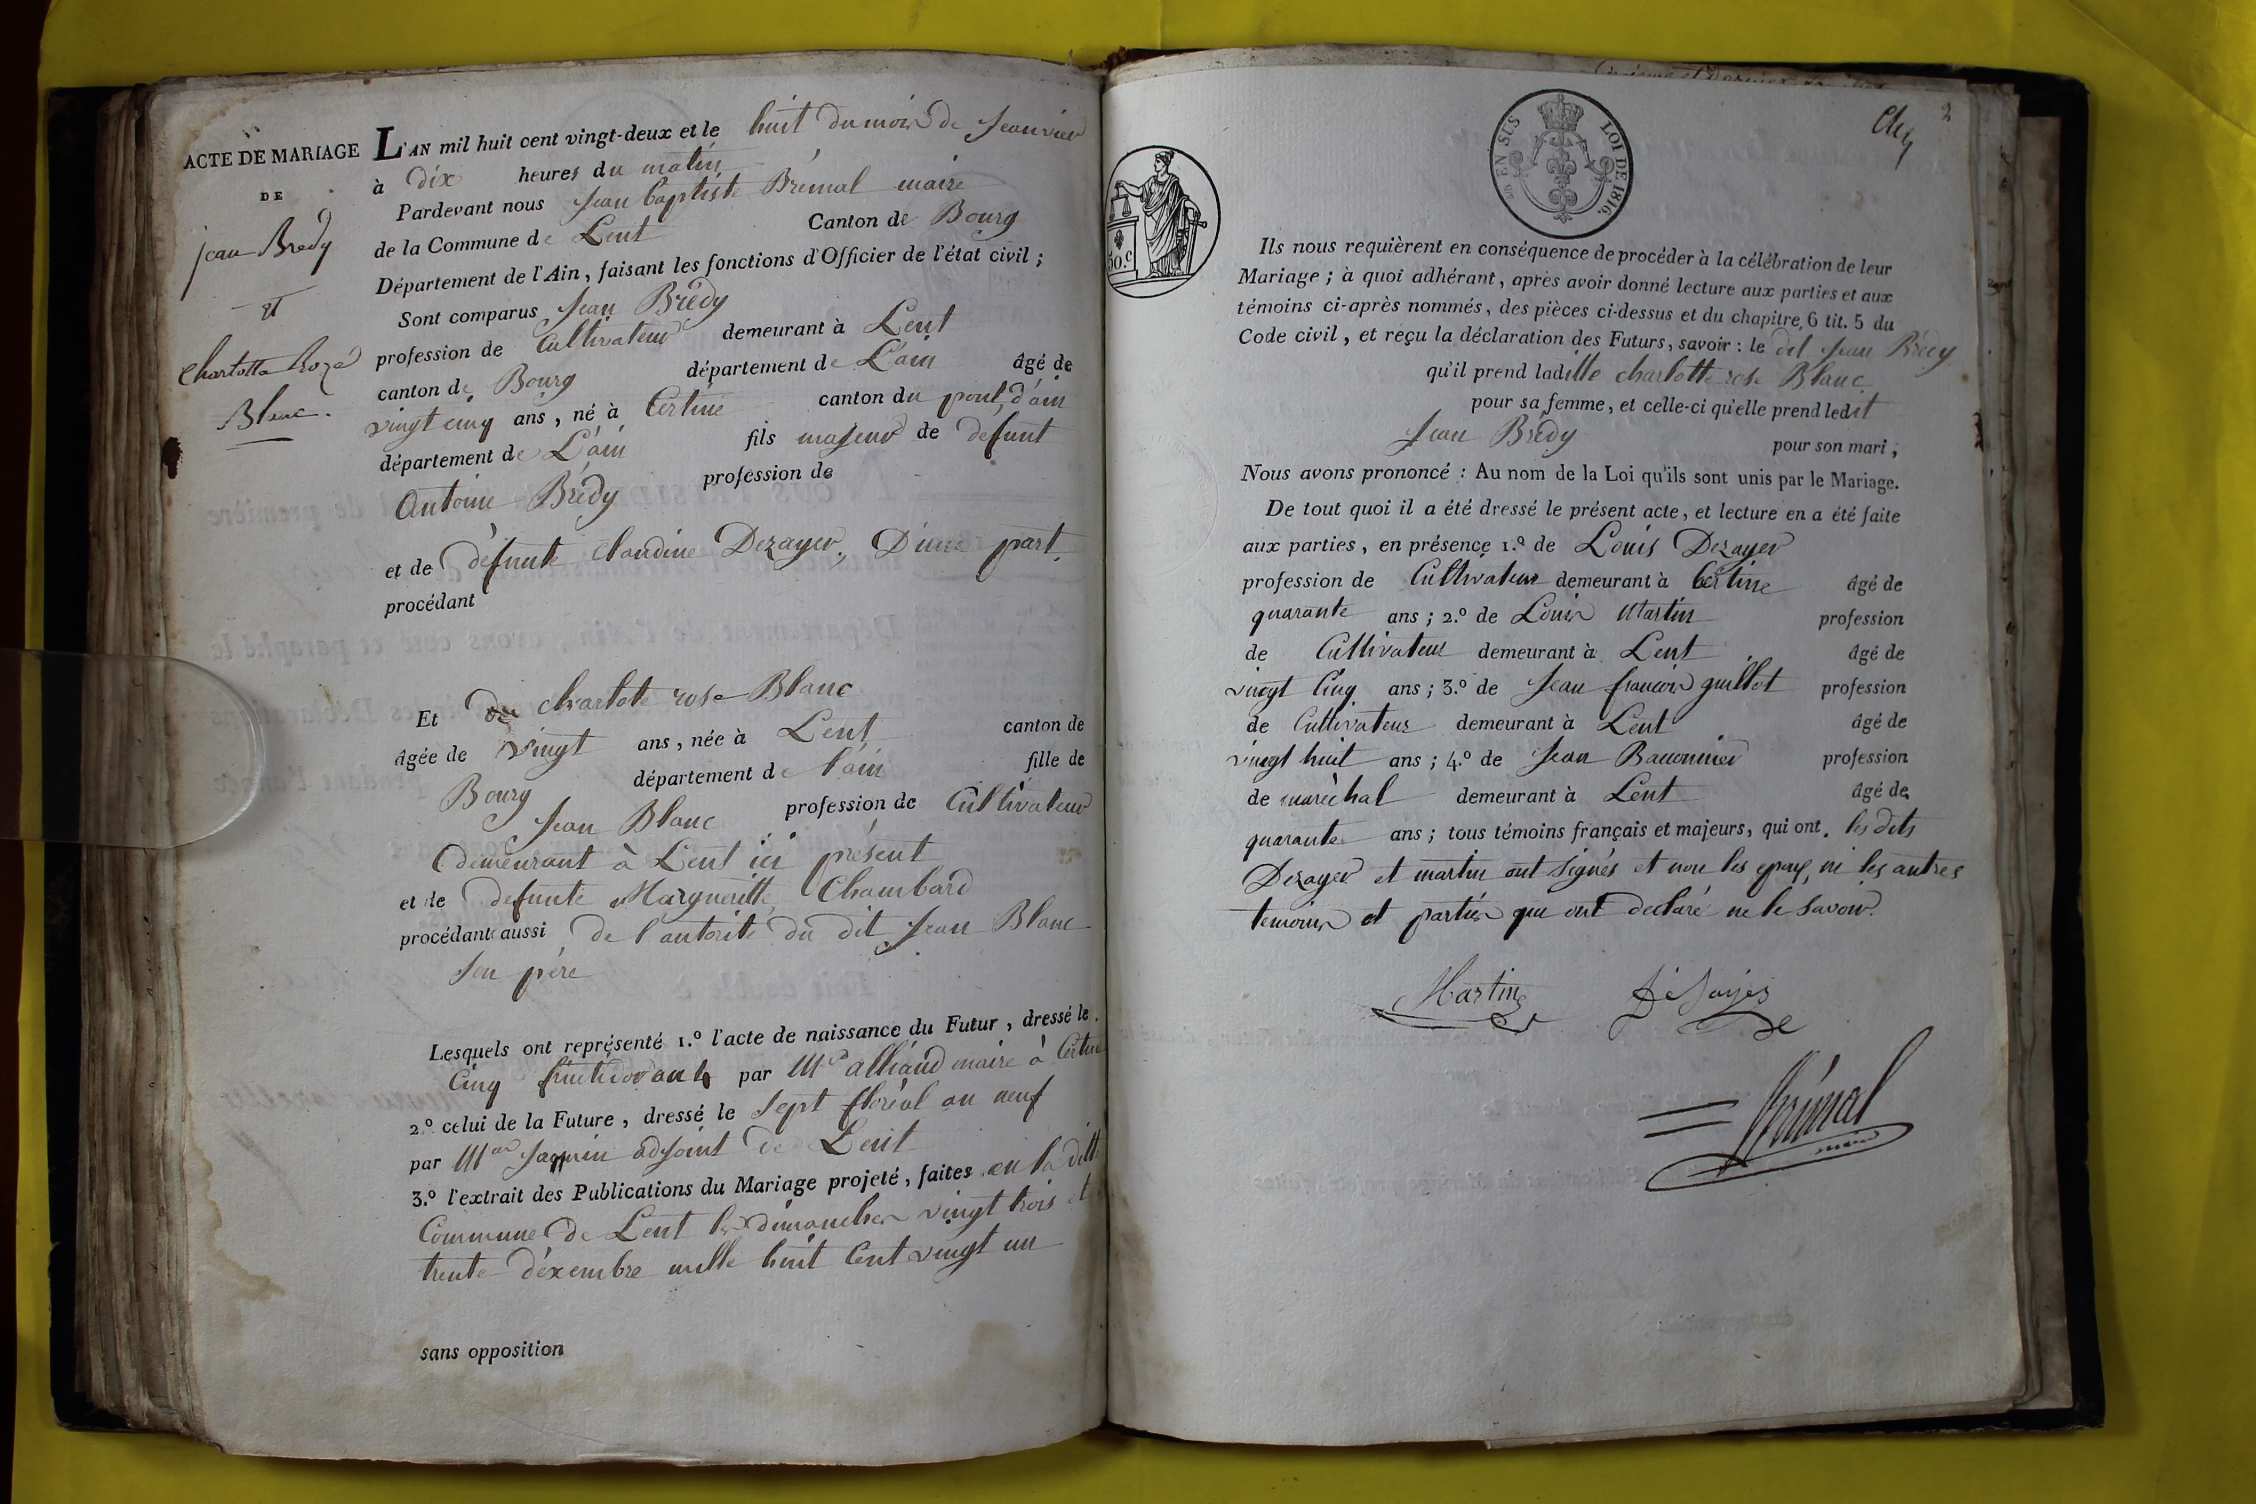 ACTE DE MARIAGE
DE
jean Bredy
et
charlotte Roze
Blanc.
L'AN mil huit cent vingt-deux et le huit du mois de Jeanvier
à dix heures du matin
Pardevant nous Jean baptiste Brémal maire
de la Commune de Lent Canton de Bourg
Département de l'Ain, faisant les fonctions d'Officier de l'état civil;
Sont comparus Jean Brédy
profession de Cultivateur demeurant à Lent
canton de Bourg département de L'ain âgé de
vingt cinq ans, né à Certine canton du pont d'ain
département de L'ain fils majeur de defunt
Antoine Brédy profession de
et de défunte Claudine Dezayer, D'une part.
procédant
Et charlote rose Blanc
âgée de vingt ans, née à Lent canton de
Bourg département de l'ain fille de
Jean Blanc profession de Cultivateur
demeurant à Lent ici présent
et de defunte Margueritte Chambard
procédante aussi de l'autorité du dit Jean Blanc
son père
Lesquels ont représenté 1.º l'acte de naissance du Futur, dressé le
Cinq par Mr alliaud maire à Certine
2.º celui de la Future, dressé le sept floréal an neuf
par adjoint de Lent
3.º l'extrait des Publications du Mariage projeté, faites en la ditte
Commune de Lent les dimanches vingt trois et
trente déxembre mille huit Cent vingt un
sans opposition
2
EN SUS LOI DE 1816.
50.c
Ils nous requièrent en conséquence de procéder à la célébration de leur
Mariage; à quoi adhérant, après avoir donné lecture aux parties et aux
témoins ci-après nommés, des pièces ci-dessus et du chapitre 6 tit. 5 du
Code civil, et reçu la déclaration des Futurs, savoir: le dit Jean Brédy
qu'il prend ladille charlotte rose Blanc
pour sa femme, et celle-ci qu'elle prend ledit
Jean Brédy pour son mari;
Nous avons prononcé: Au nom de la Loi qu'ils sont unis par le Mariage.
De tout quoi il a été dressé le présent acte, et lecture en a été faite
aux parties, en présence 1.º de Louis Dezayer
profession de Cultivateur demeurant à Certine âgé de
quarante ans; 2.º de Louis Martin profession
de Cultivateur demeurant à Lent âgé de
vingt Cinq ans; 3.º de Jean francois guillot profession
de Cultivateur demeurant à Lent âgé de
vingt huit ans; 4.º de Jean profession
de maréchal demeurant à Lent âgé de
quarante ans; tous témoins français et majeurs, qui ont. les dits
Dezayer et martin ont signés et non les epoux, ni les autres
temoins et parties qui ont declaré ne le Savoir.
Martin DéSayer
Brémal
maire